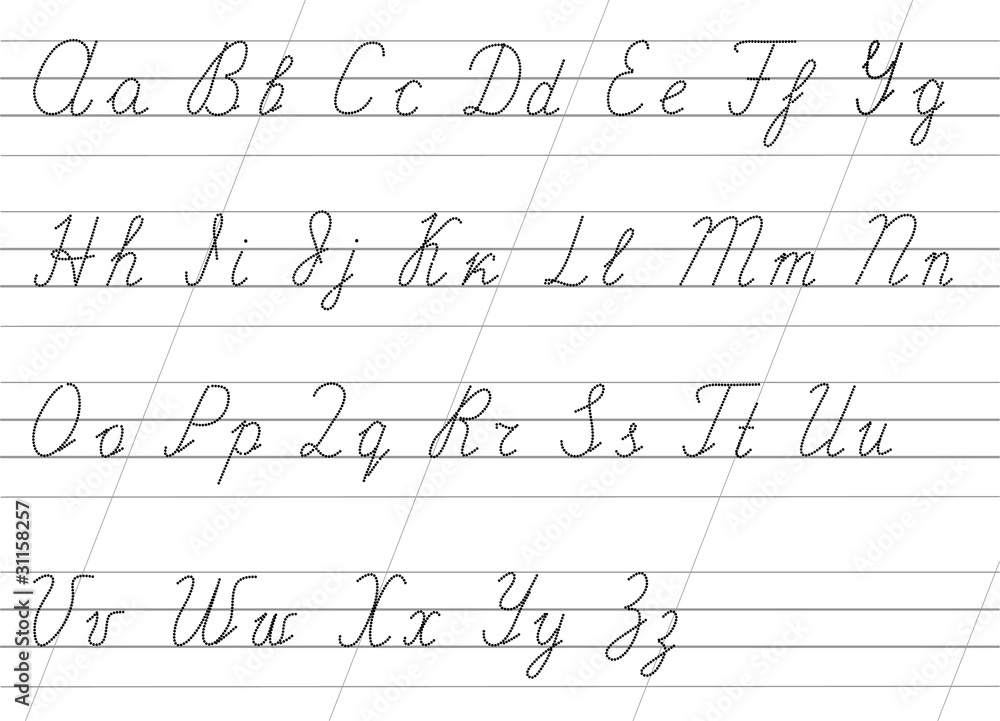 Aa Bb Cc Dd Ee Ff Gg
Hh Ii Jj Kk Ll Mm Nn
Oo Pp Qq Rr Ss Tt Uu
Vv Ww Xx Yy Zz
Adobe Stock | #31158257